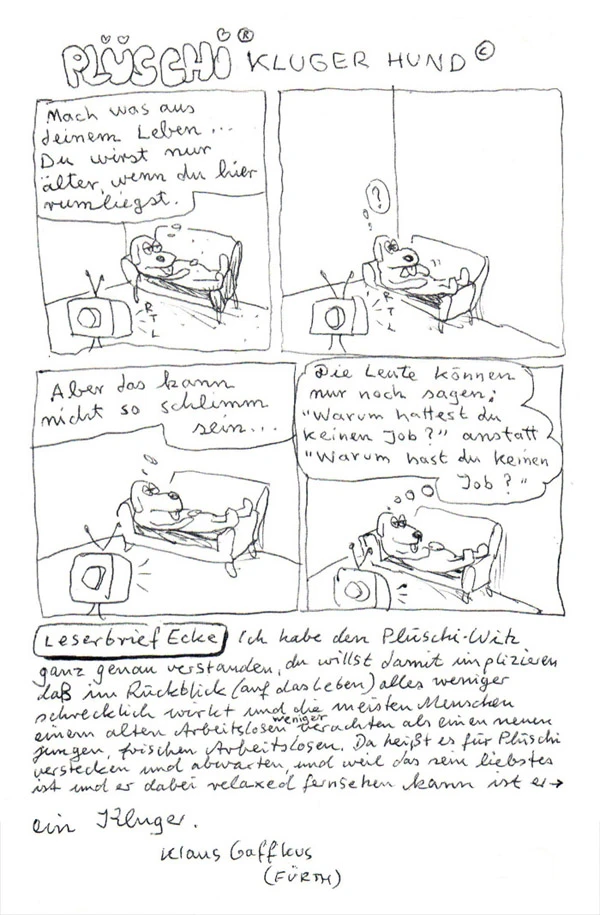 PLÜSCHI ® KLUGER HUND ©
Mach was aus
deinem Leben...
Du wirst nur
älter, wenn du hier
rumliegst.
RTL
?
RTL
Aber das kann
nicht so schlimm
sein...
Die Leute können
nur noch sagen;
"Warum hattest du
keinen Job?" anstatt
"Warum hast du keinen
Job?"
Leserbrief Ecke Ich habe den Plüschi-Witz
ganz genau verstanden, du willst damit implizieren
daß im Rückblick (auf das Leben) alles weniger
schrecklich wirkt und die meisten Menschen
einem alten Arbeitslosen weniger verachten als einen neuen
jungen, frischen Arbeitslosen. Da heißt es für Plüschi
verstecken und abwarten, und weil das sein liebstes
ist und er dabei relaxed fernsehen kann ist er→
ein Kluger.
Klaus Gaffkus
(FÜRTH)